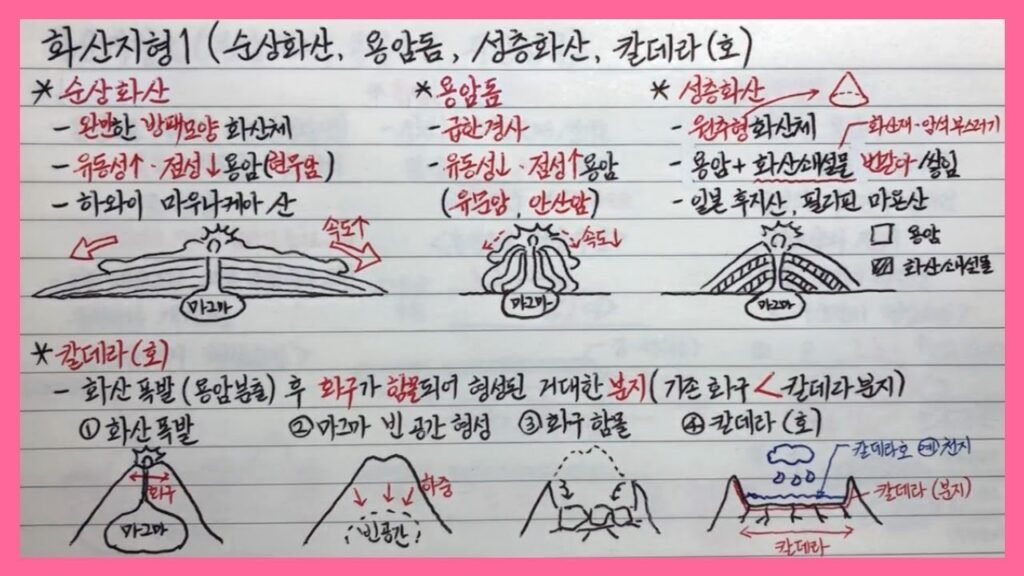 화산지형1 (순상화산, 용암돔, 성층화산, 칼데라(호)
* 순상화산
- 완만한 방패모양 화산체
- 유동성↑·점성↓ 용암(현무암)
- 하와이 마우나케아 산
속도↑
마그마
* 용암돔
- 급한경사
- 유동성↓·점성↑ 용암
(유문암, 안산암)
속도↓
마그마
* 성층화산
- 원추형화산체
화산재·암석부스러기
- 용암+화산쇄설물 번갈아 쌓임
- 일본 후지산, 필리핀 마욘산
용암
화산쇄설물
마그마
* 칼데라(호)
- 화산 폭발(용암분출) 후 화구가 함몰되어 형성된 거대한 분지(기존 화구 < 칼데라분지)
① 화산폭발
화구
마그마
② 마그마 빈 공간 형성
하중
빈공간
③ 화구 함몰
④ 칼데라 (호)
칼데라호 예 천지
칼데라 (분지)
칼데라